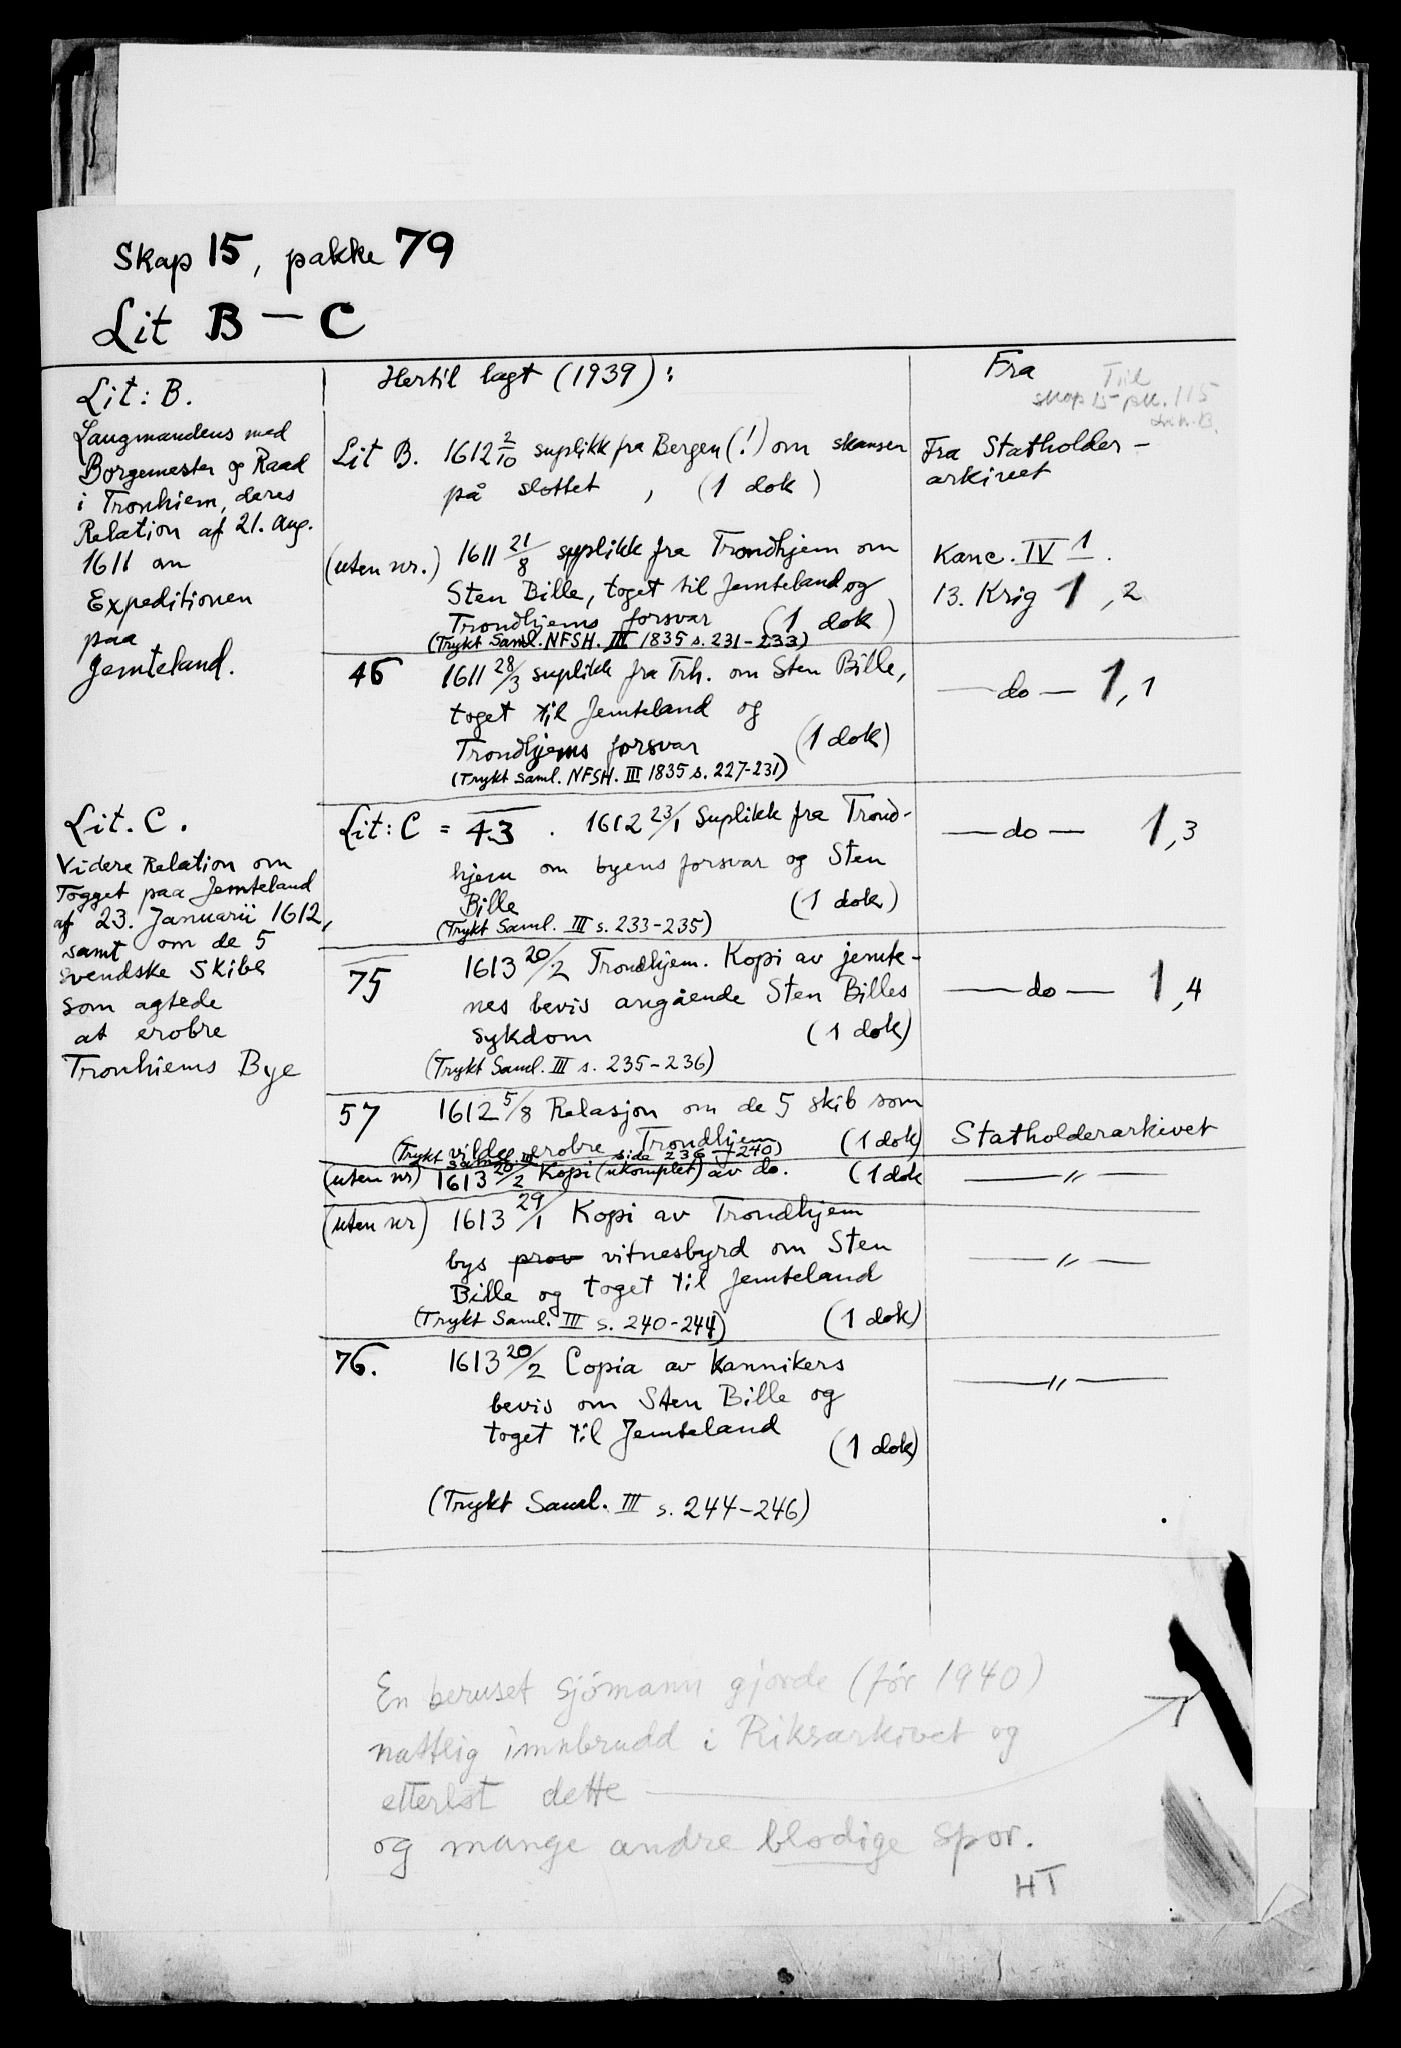 Skap 15, pakke 79
Lit B — C
Lit: B.
Laugmandens med
Borgemester og Raad
i Tronhiem, deres
Relation af 21. Aug.
1611 om
Expeditionen
paa
Jemteland.
Lit. C.
Videre Relation om
Togget paa Jemteland
af 23. Januarii 1612,
samt om de 5
svendske Skibe
som agtede
at erobre
Tronhiems Bye
Hertil lagt (1939):
Fra
Til
skap 15 pk. 115
Lit. B.
Lit B. 1612 2/10 suplikk fra Bergen (!) om skansen
på slottet, (1 dok)
Fra Statholder-
arkivet
(uten nr.) 1611 21/8 supplikk fra Trondhjem om
Sten Bille, toget til Jemteland og
Trondhjems forsvar (1 dok)
(Trykt Saml. NFSH. III 1835 s. 231-233)
Kanc. IV 1.
13. Krig 1, 2
46 1611 28/3 suplikk fra Trh. om Sten Bille,
toget til Jemteland og
Trondhjems forsvar (1 dok)
(Trykt Saml. NFSH. III 1835 s. 227-231)
— do — 1, 1
Lit: C = 43. 1612 23/1 Suplikk fra Trond-
hjem om byens forsvar og Sten
Bille (1 dok)
(Trykt Saml. III s. 233-235)
— do — 1, 3
75 1613 20/2 Trondhjem. Kopi av jemte-
nes bevis angående Sten Billes
sykdom (1 dok)
(Trykt Saml. III s. 235-236)
— do — 1, 4
57 1612 5/8 Relasjon om de 5 skib som
vilde erobre Trondhjem (1 dok)
(Trykt Saml. III side 236-240)
Statholderarkivet
(uten nr) 1613 20/2 Kopi (ukomplet) av do. (1 dok
— " —
(uten nr) 1613 29/1 Kopi av Trondhjem
bys prov vitnesbyrd om Sten
Bille og toget til Jemteland
(Trykt Saml. III s. 240-244) (1 dok)
— " —
76. 1613 20/2 Copia av Kannikers
bevis om Sten Bille og
toget til Jemteland
(1 dok)
(Trykt Saml. III s. 244-246)
— " —
En beruset sjömann gjorde (før 1940)
nattlig innbrudd i Riksarkivet og
etterlot dette
og mange andre blodige spor.
HT